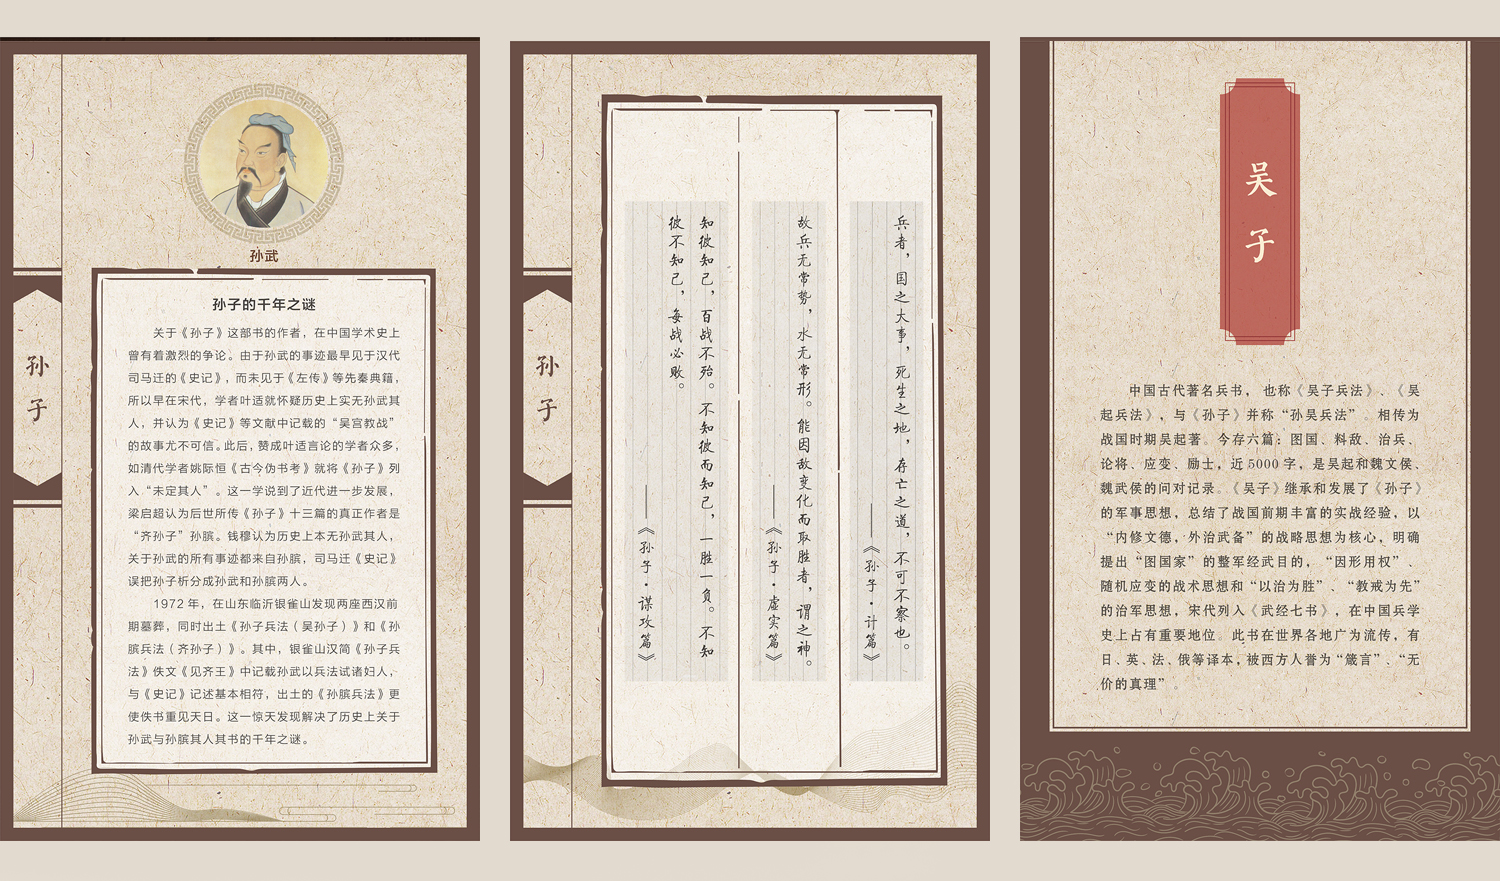 孙子
孙武
孙子的千年之谜
关于《孙子》这部书的作者，在中国学术史上
曾有着激烈的争论。由于孙武的事迹最早见于汉代
司马迁的《史记》，而未见于《左传》等先秦典籍，
所以早在宋代，学者叶适就怀疑历史上实无孙武其
人，并认为《史记》等文献中记载的“吴宫教战”
的故事尤不可信。此后，赞成叶适言论的学者众多，
如清代学者姚际恒《古今伪书考》就将《孙子》列
入“未定其人”。这一学说到了近代进一步发展，
梁启超认为后世所传《孙子》十三篇的真正作者是
“齐孙子”孙膑。钱穆认为历史上本无孙武其人，
关于孙武的所有事迹都来自孙膑，司马迁《史记》
误把孙子析分成孙武和孙膑两人。
1972 年，在山东临沂银雀山发现两座西汉前
期墓葬，同时出土《孙子兵法（吴孙子）》和《孙
膑兵法（齐孙子）》。其中，银雀山汉简《孙子兵
法》佚文《见齐王》中记载孙武以兵法试诸妇人，
与《史记》记述基本相符，出土的《孙膑兵法》更
使佚书重见天日。这一惊天发现解决了历史上关于
孙武与孙膑其人其书的千年之谜。
孙子
兵者，国之大事，死生之地，存亡之道，不可不察也。
——《孙子·计篇》
故兵无常势，水无常形。能因敌变化而取胜者，谓之神。
——《孙子·虚实篇》
知彼知己，百战不殆。不知彼而知己，一胜一负。不知
彼不知己，每战必败。
——《孙子·谋攻篇》
吴子
中国古代著名兵书，也称《吴子兵法》、《吴
起兵法》，与《孙子》并称“孙吴兵法”。相传为
战国时期吴起著。今存六篇：图国、料敌、治兵、
论将、应变、励士，近 5000 字，是吴起和魏文侯、
魏武侯的问对记录。《吴子》继承和发展了《孙子》
的军事思想，总结了战国前期丰富的实战经验，以
“内修文德，外治武备”的战略思想为核心，明确
提出“图国家”的整军经武目的，“因形用权”、
随机应变的战术思想和“以治为胜”、“教戒为先”
的治军思想，宋代列入《武经七书》，在中国兵学
史上占有重要地位。此书在世界各地广为流传，有
日、英、法、俄等译本，被西方人誉为“箴言”、“无
价的真理”。